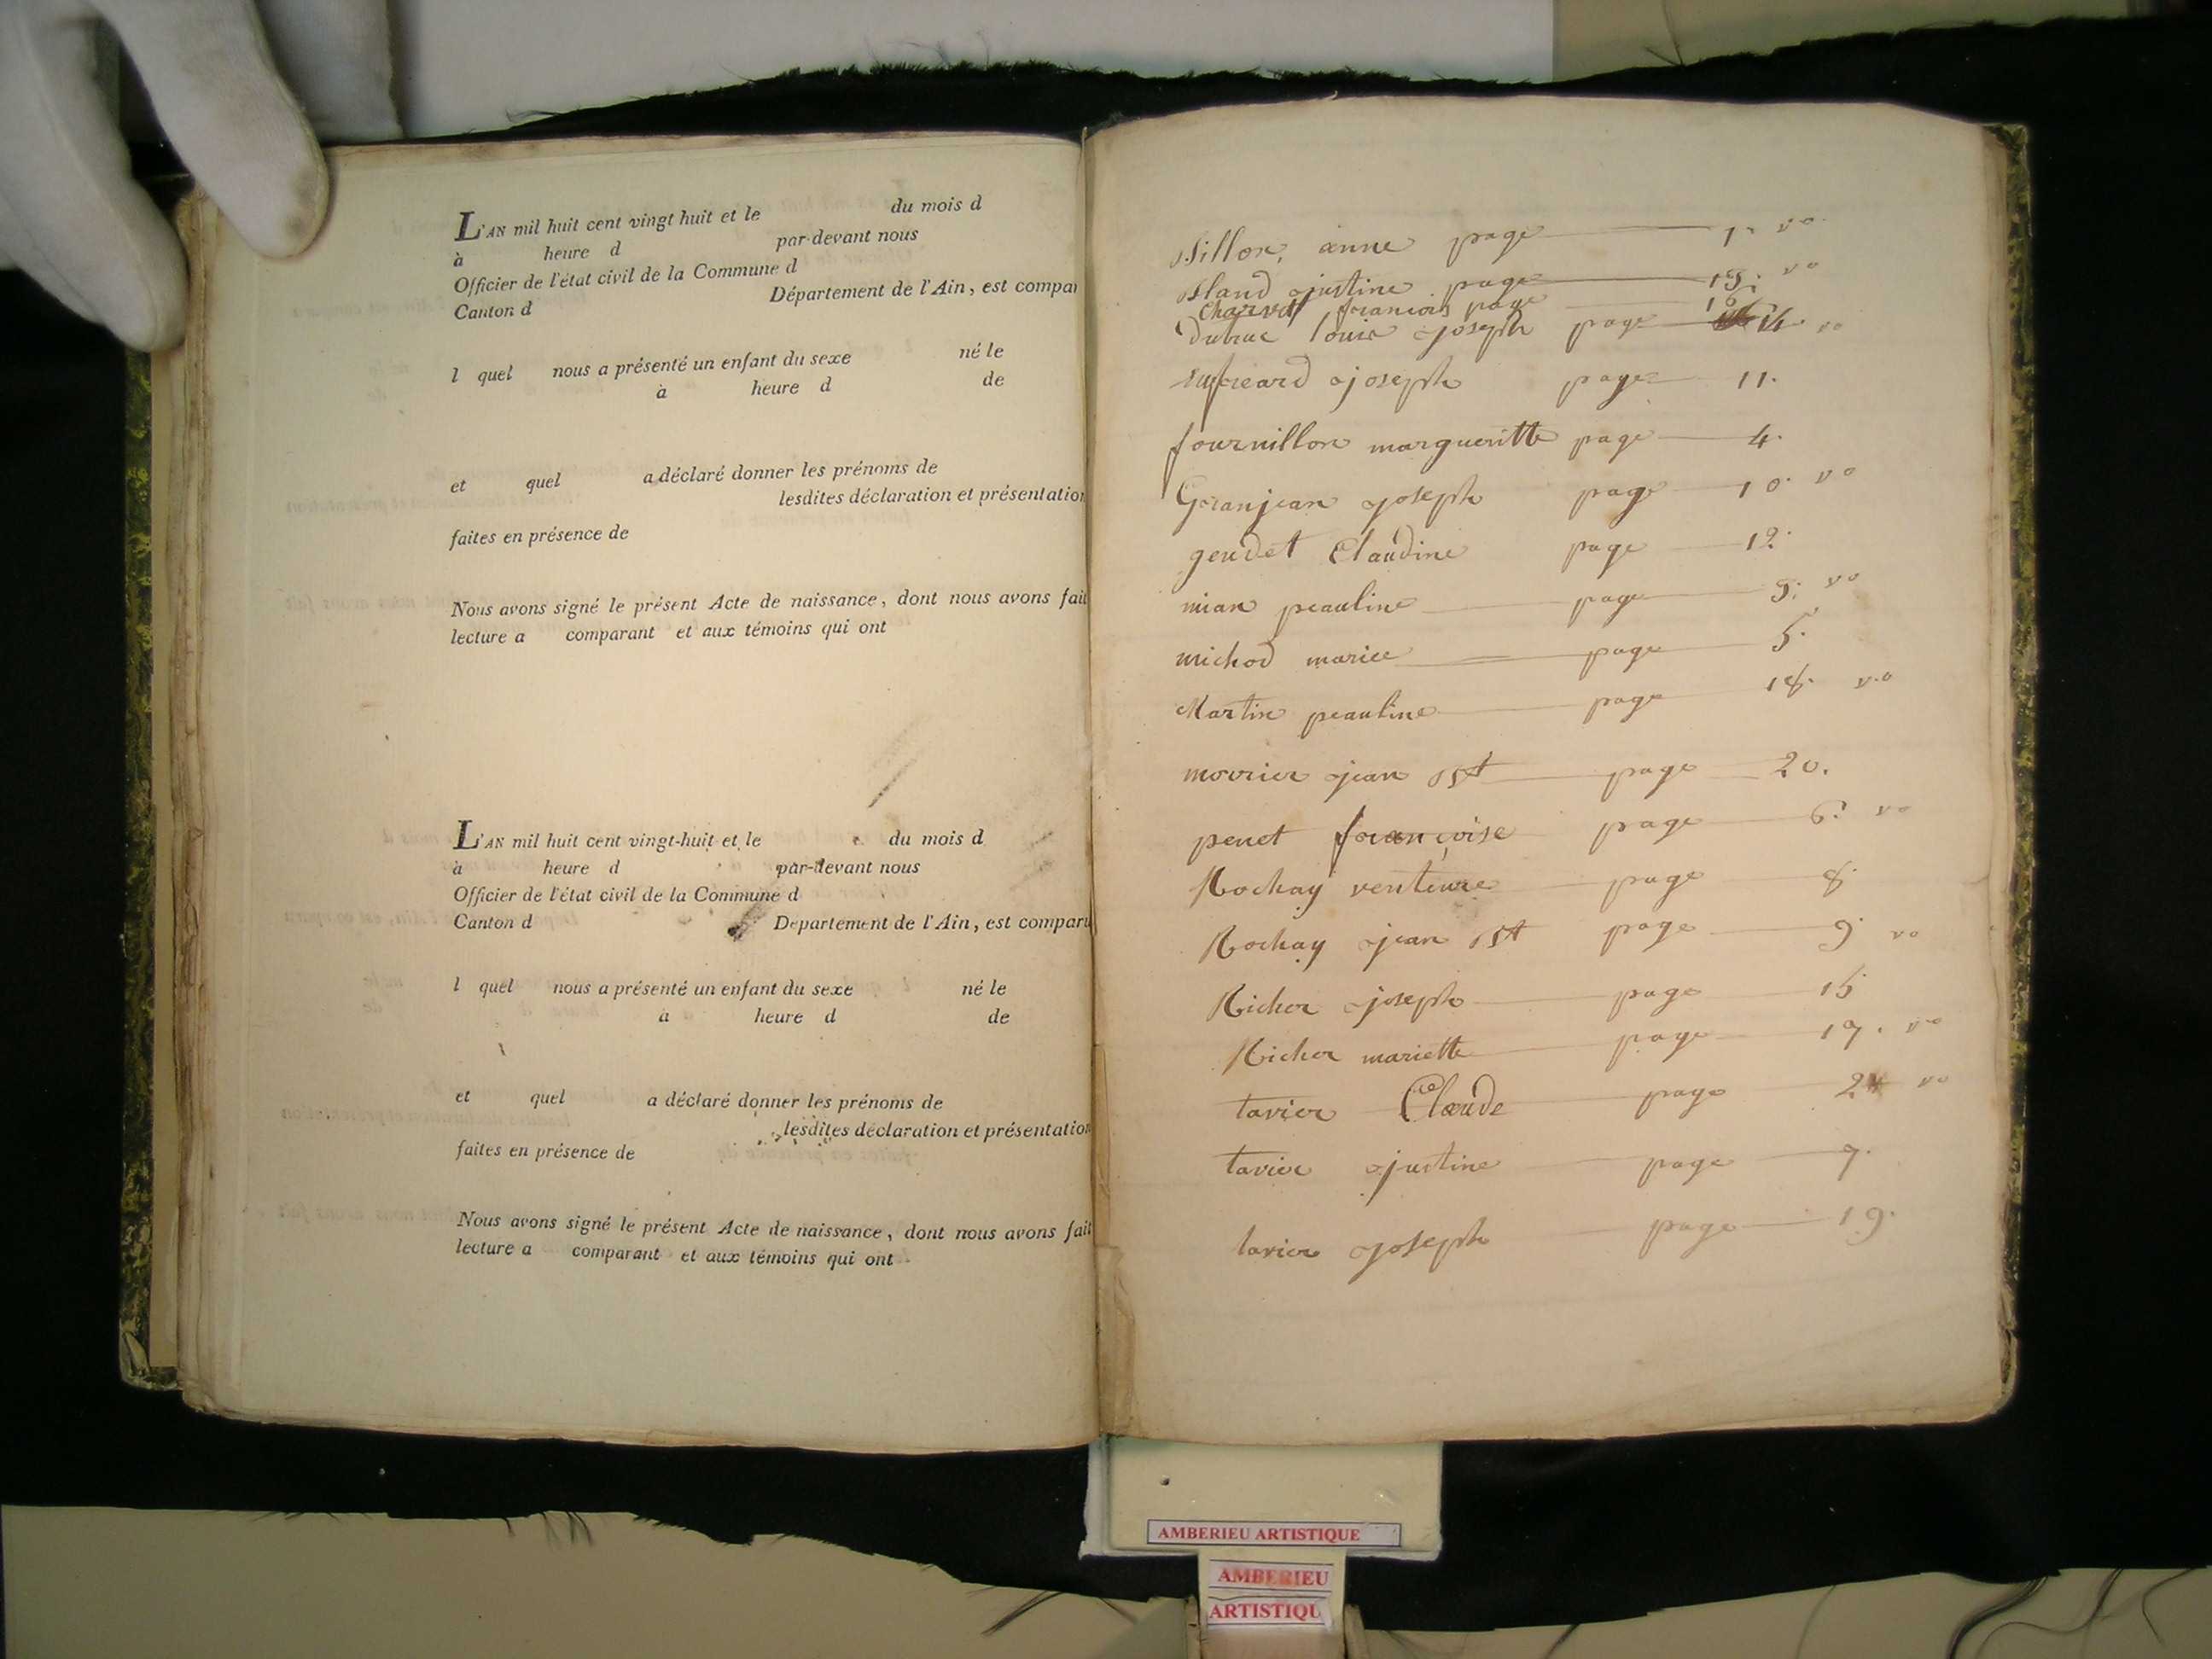 L'AN mil huit cent vingt huit et le du mois d
à heure d par-devant nous
Officier de l'état civil de la Commune d
Canton d Département de l'Ain, est compar
l quel nous a présenté un enfant du sexe né le
à heure d de
et quel a déclaré donner les prénoms de
lesdites déclaration et présentation
faites en présence de
Nous avons signé le présent Acte de naissance, dont nous avons fait
lecture a comparant et aux témoins qui ont
L'AN mil huit cent vingt-huit et le du mois d
à heure d par-devant nous
Officier de l'état civil de la Commune d
Canton d Departement de l'Ain, est comparu
l quel nous a présenté un enfant du sexe né le
à heure d de
et quel a déclaré donner les prénoms de
lesdites déclaration et présentation
faites en présence de
Nous avons signé le présent Acte de naissance, dont nous avons fait
lecture a comparant et aux témoins qui ont
Billon, anne page 1. vo
Bland justine page vo
Charvet francois page
Dubuc louis joseph page 14 vo
joseph page 11.
fournillon margueritte page 4.
Granjean joseph page 10. vo
geudet Claudine page 12.
mian peauline page vo
michod marie page 5.
Martin peauline page 18. vo
movrier jean Bst page 20.
penet françoise page vo
Rochay venture page 8.
Rochay jean Bst page 9. vo
Richer joseph page 15
Richer mariette page 17. vo
tavier Claude page vo
tavier justine page 7.
tavier joseph page 19.
AMBERIEU ARTISTIQUE
AMBERIEU
ARTISTIQU